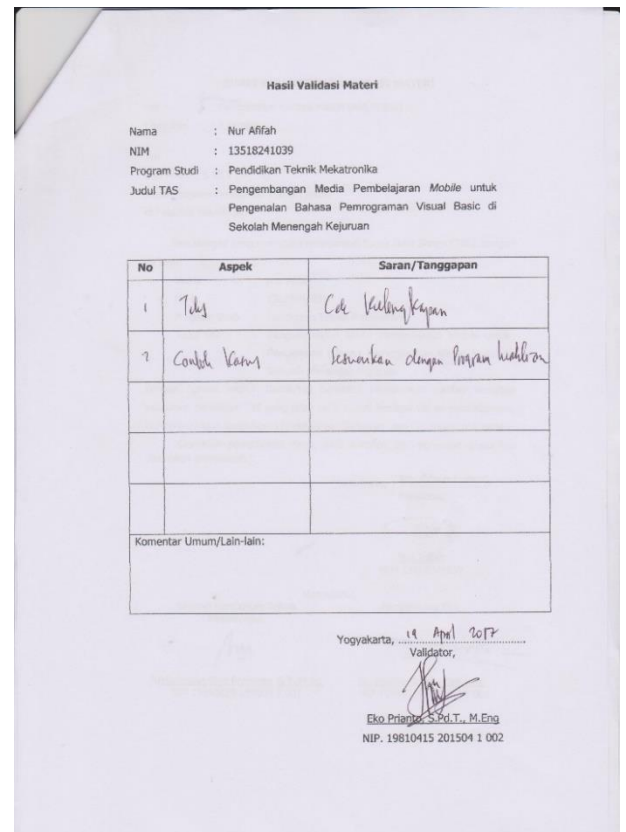 Hasil Validasi Materi
Nama : Nur Afifah
NIM : 13518241039
Program Studi : Pendidikan Teknik Mekatronika
Judul TAS : Pengembangan Media Pembelajaran Mobile untuk
Pengenalan Bahasa Pemrograman Visual Basic di
Sekolah Menengah Kejuruan
No Aspek Saran/Tanggapan
1 Cek Kelengkapan
2 Contoh Kasus Sesuaikan dengan Program
Komentar Umum/Lain-lain:
Yogyakarta, 19 April 2017
Validator,
Eko Prianto, S.Pd.T., M.Eng
NIP. 19810415 201504 1 002